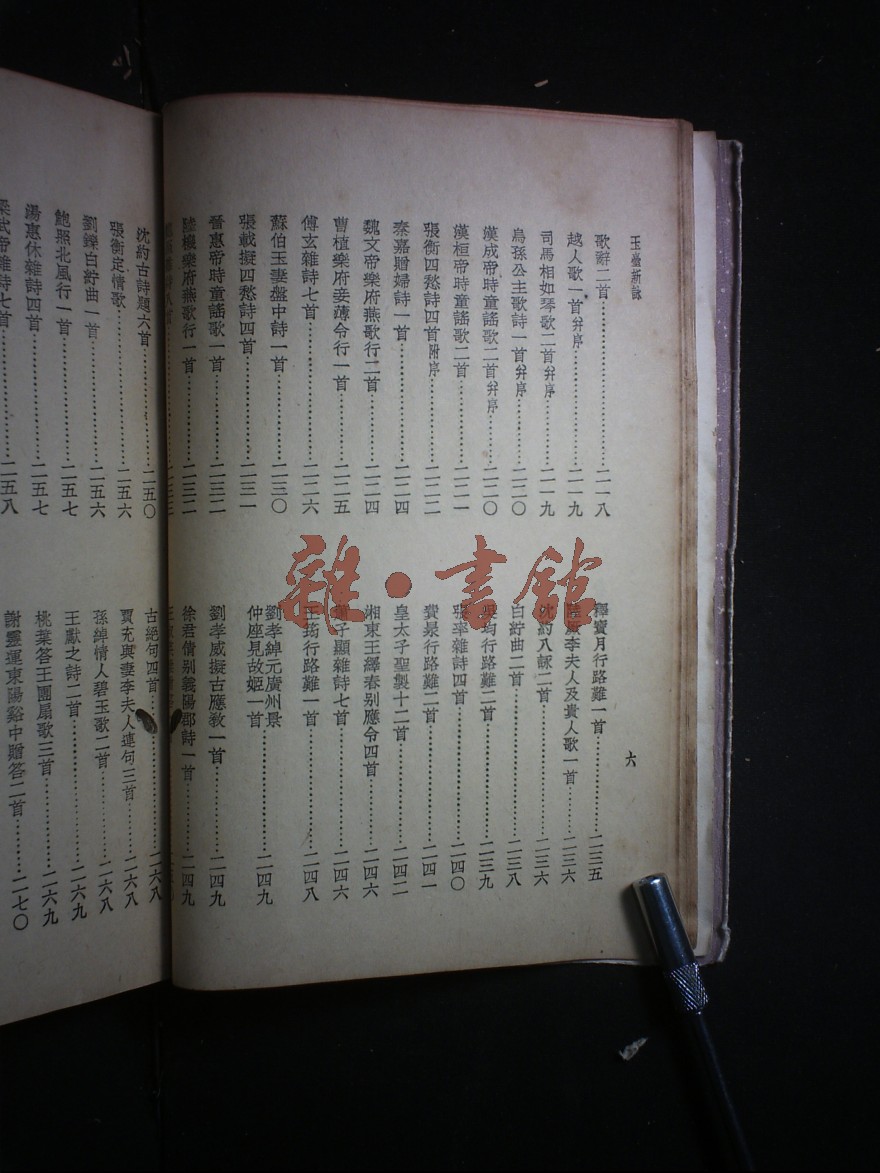 玉臺新詠
六
歌辭二首 二一八
越人歌一首幷序 二一九
司馬相如琴歌二首幷序 二一九
烏孫公主歌詩一首幷序 二二〇
漢成帝時童謠歌二首幷序 二二〇
漢桓帝時童謠歌二首 二二一
張衡四愁詩四首附序 二二二
秦嘉贈婦詩一首 二二四
魏文帝樂府燕歌行二首 二二四
曹植樂府妾薄命行一首 二二五
傅玄雜詩七首 二二六
蘇伯玉妻盤中詩一首 二三〇
張載擬四愁詩四首 二三一
晉惠帝時童謠歌一首 二三二
陸機樂府燕歌行一首 二三二
二三三
釋寶月行路難一首 二三五
陸厥李夫人及貴人歌一首 二三六
沈約八詠二首 二三六
白紵曲二首 二三八
吳均行路難二首 二三九
張率雜詩四首 二四〇
費昶行路難二首 二四一
皇太子聖製十二首 二四二
湘東王繹春别應令四首 二四六
蕭子顯雜詩七首 二四六
王筠行路難一首 二四八
劉孝綽元廣州景
仲座見故姬一首 二四九
劉孝威擬古應教一首 二四九
徐君倩别義陽郡詩一首 二四九
沈約古詩題六首 二五〇
張衡定情歌 二五六
劉鑠白紵曲一首 二五六
鮑照北風行一首 二五七
湯惠休雜詩四首 二五七
梁武帝雜詩七首 二五八
古絕句四首 二六八
賈充與妻李夫人連句三首 二六八
孫綽情人碧玉歌二首 二六八
王獻之詩二首 二六九
桃葉答王團扇歌三首 二六九
謝靈運東陽谿中贈答二首 二七〇
雜·書館